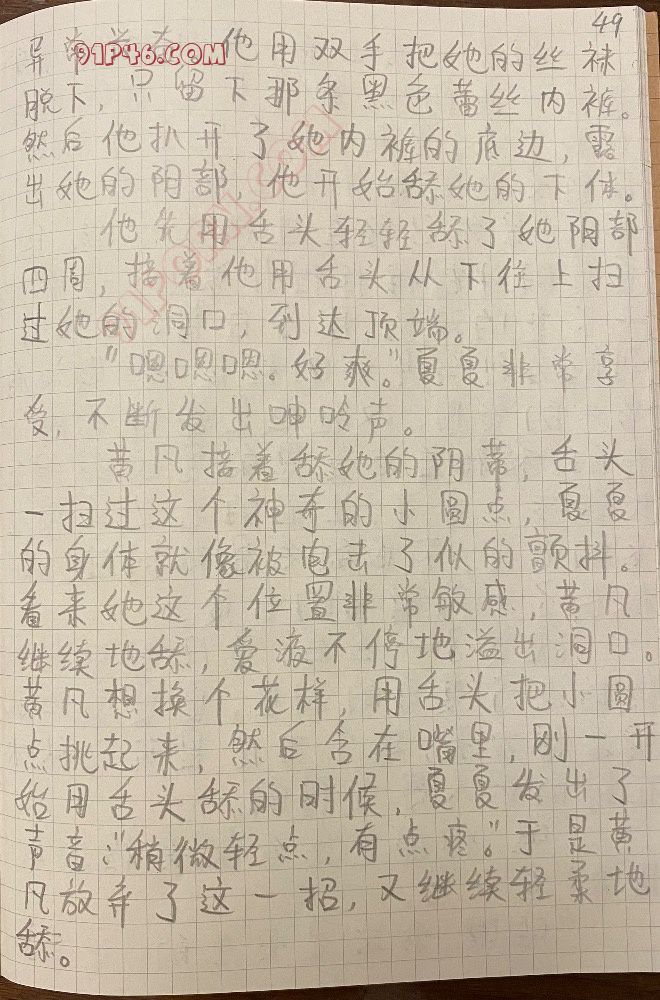 49
91P46.COM
异常 他用双手把她的丝袜
脱下，只留下那条黑色蕾丝内裤。
然后他扒开了她内裤的底边，露
出她的阴部，他开始舔她的下体。
他先用舌头轻轻舔了她阴部
四周，接着他用舌头从下往上扫
过她的洞口，到达顶端。
“嗯嗯嗯。好爽。”夏夏非常享
受，不断发出呻吟声。
黄凡接着舔她的阴蒂，舌头
一扫过这个神奇的小圆点，夏夏
的身体就像被电击了似的颤抖。
看来她这个位置非常敏感，黄凡
继续地舔，爱液不停地溢出洞口。
黄凡想换个花样，用舌头把小圆
点挑起来，然后含在嘴里，刚一开
始用舌头舔的时候，夏夏发出了
声音：“稍微轻点，有点疼。”于是黄
凡放弃了这一招，又继续轻柔地
舔。